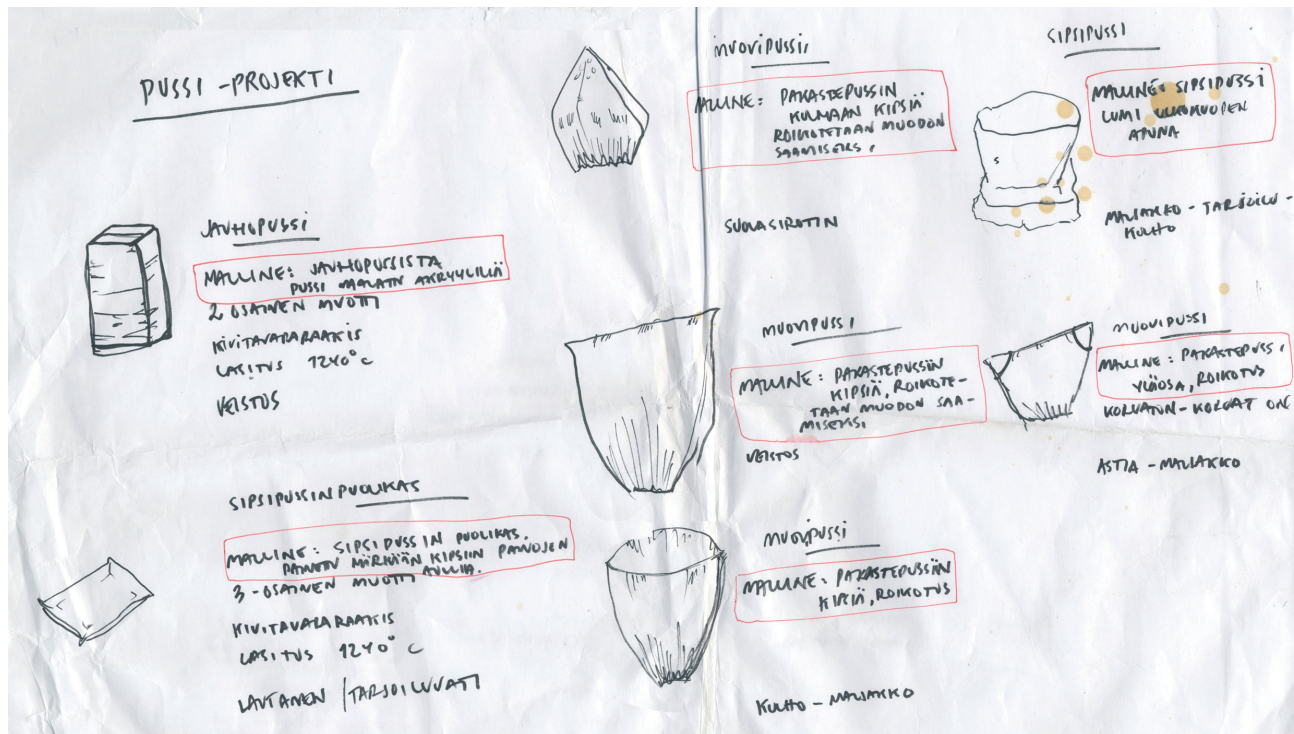 PUSSI - PROJEKTI
JAUHOPUSSI
MALLINE: JAUHOPUSSISTA
PUSSI MAALATN AKRYYLILLÄ
2 OSAINEN MUOTTI
KIVITAVARARAAKIS
LASITUS 1240°C
VEISTOS
SIPSIPUSSIN PUOLIKAS
MALLINE: SIPSIPUSSIN PUOLIKAS.
PAINETN MÄRKÄÄN KIPSIIN PAINOJEN
AVULLA.
3-OSAINEN MUOTTI
KIVITAVARARAAKIS
LASITUS 1240°C
LAUTANEN / TARJOILUVATI
MUOVIPUSSI
MALLINE: PAKASTEPUSSIN
KULMAAN KIPSIÄ
ROIKOTETAAN MUODON
SAAMISEKS.
SUOLASIROTIN
MUOVIPUSSI
MALLINE: PAKASTEPUSSIIN
KIPSIÄ, ROIKOTE-
TAAN MUODON SAA-
MISEKSI
VEISTOS
MUOVIPUSSI
MALLINE: PAKASTEPUSSIIN
KIPSIÄ, ROIKOTUS
KULHO - MALJAKKO
SIPSIPUSSI
MALLINE: SIPSIPUSSI
LUMI ULKOMUODEN
APUNA
MALJAKKO - TARJOILU-
KULHO
MUOVIPUSSI
MALLINE: PAKASTEPUSSI
YLÄOSA, ROIKOTUS
KORVATON - KORVAT ON
ASTIA - MALJAKKO